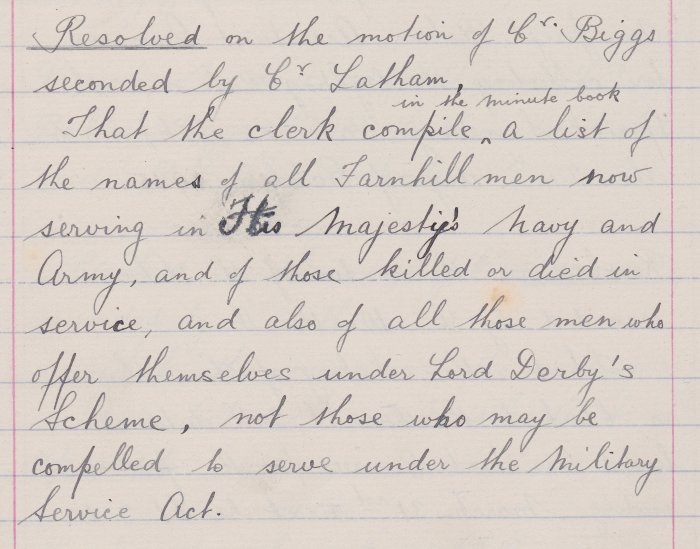 Resolved on the motion of Cr. Biggs
seconded by Cr Latham,
in the minute book
That the clerk compile ‸ a list of
the names of all Farnhill men now
serving in His Majesty's Navy and
Army, and of those killed or died in
service, and also of all those men who
offer themselves under Lord Derby's
Scheme, not those who may be
compelled to serve under the Military
Service Act.